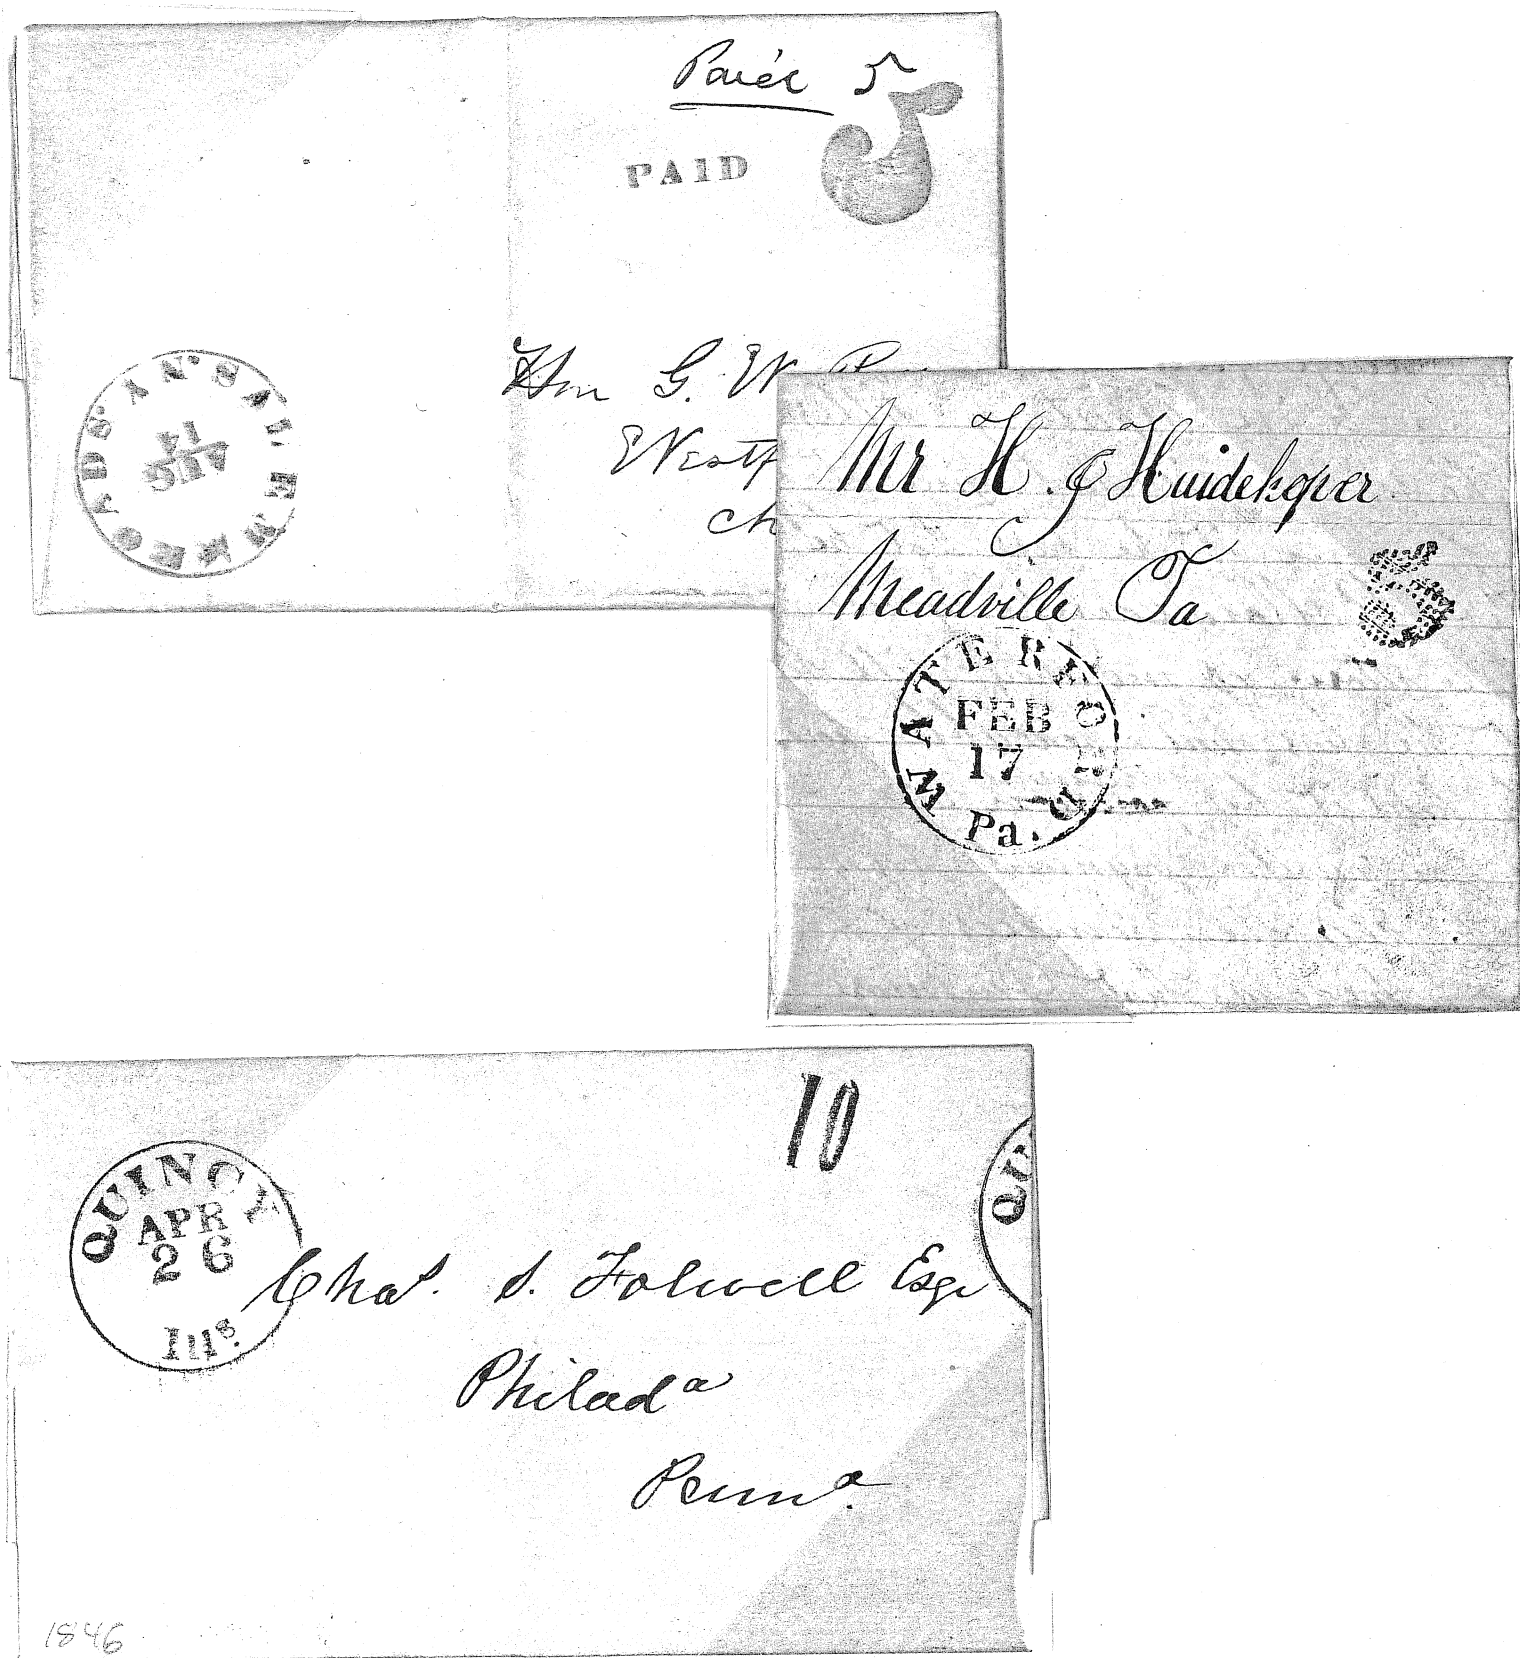 Paid 5
PAID 5
SALEM X ROADS. N.Y.
AUG
14
Hon G. W.
Westf
Ch
Mr H. J Huidekoper
Meadville Pa
5
WATERFORD
FEB
17
Pa.
10
QUINCY
APR
26
Ills.
QU
Chas. S. Folwell Esqr
Philada
Penna.
1846